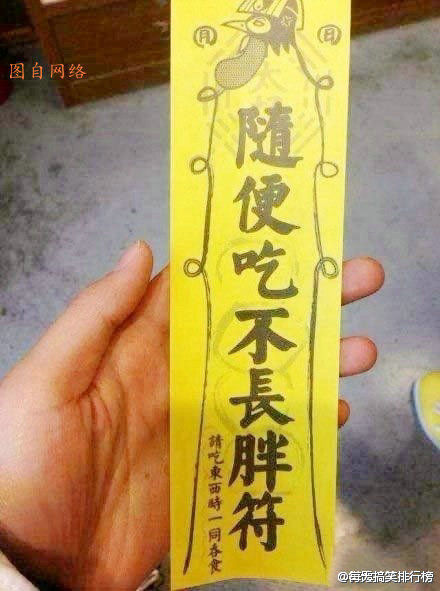 图自网络
月
日
隨便吃不長胖符
請吃東西時一同吞食
@每秒搞笑排行榜